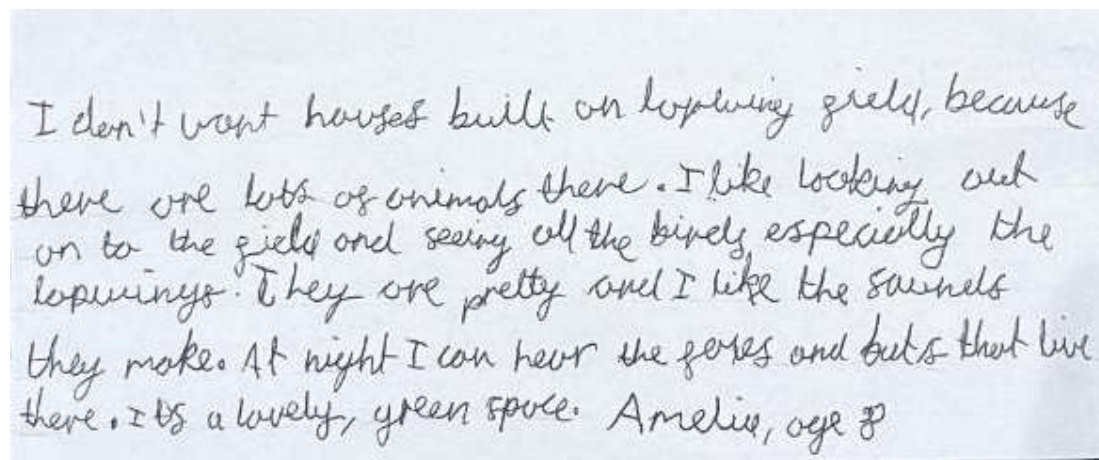 I don't want houses built on lapwing field, because
there are lots of animals there. I like looking out
on to the field and seeing all the birds especially the
lapwings. They are pretty and I like the sounds
they make. At night I can hear the foxes and bats that live
there. Its a lovely, green space. Amelia, age 8